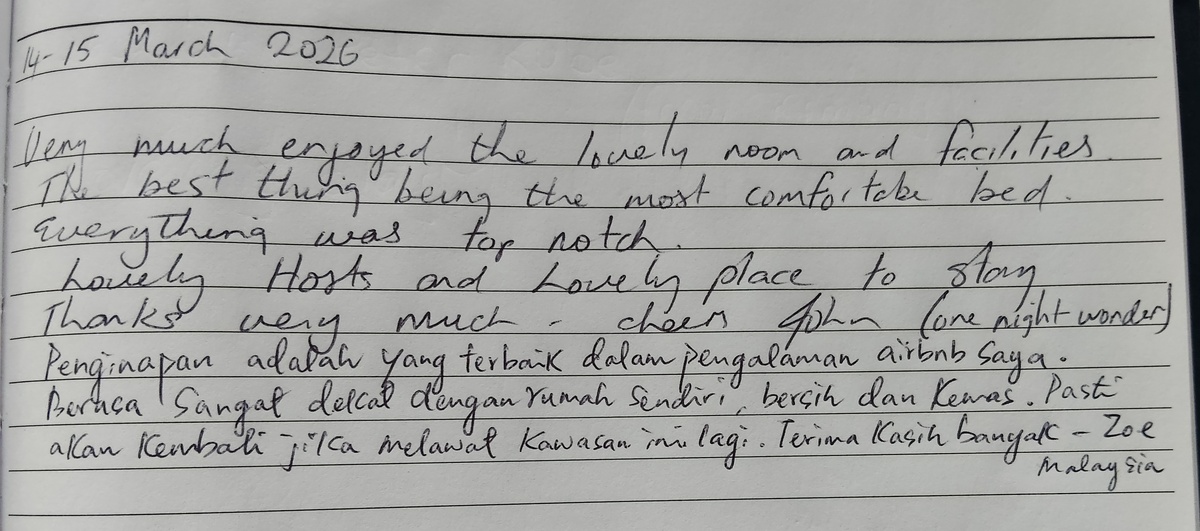 14-15 March 2026
Very much enjoyed the lovely room and facilities.
The best thing being the most comfortabe bed.
Everything was top notch.
Lovely Hosts and Lovely place to stay
Thanks very much - cheers John (one night wonder)
Penginapan adalah yang terbaik dalam pengalaman airbnb saya.
Berasa sangat dekat dengan rumah sendiri, bersih dan kemas. Pasti
akan kembali jika melawat kawasan ini lagi. Terima kasih banyak - Zoe
Malaysia